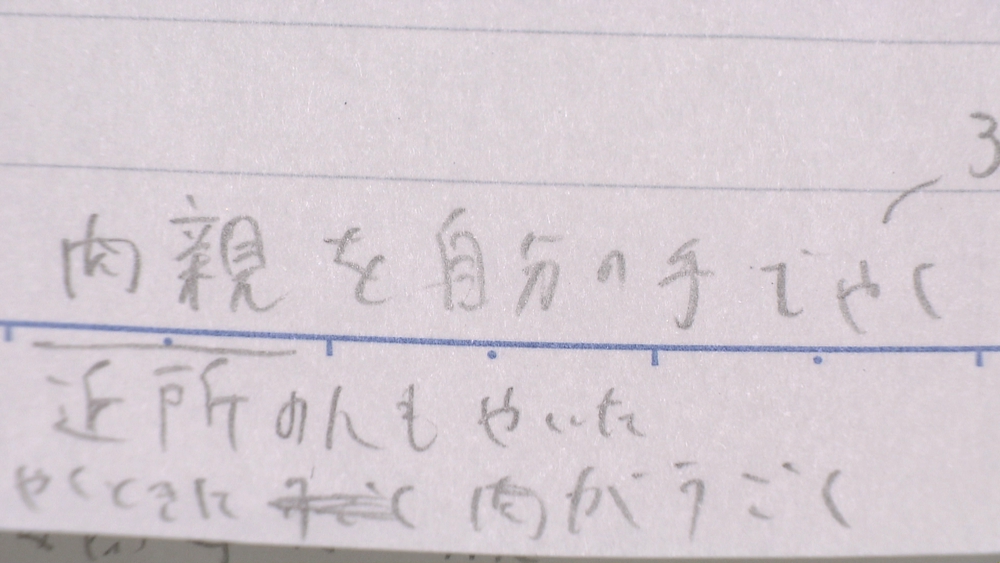 3
肉親を自分の手でやく
近所の人もやいた
やくときに 肉がうごく